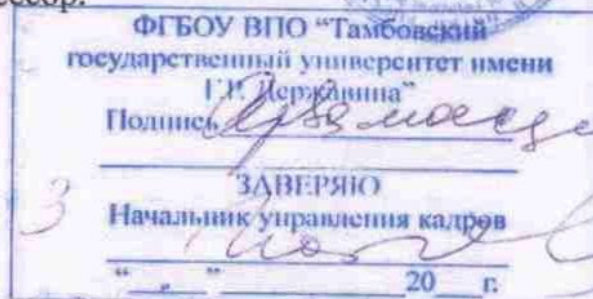 ссор.
ФГБОУ ВПО “Тамбовский
государственный университет имени
Г.Р. Державина”
Подпись
ЗАВЕРЯЮ
Начальник управления кадров
“ „ ” 20 г.